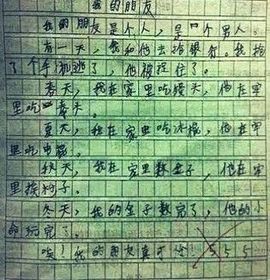 我的朋友
我的朋友是个人,是一个男人。
有一天,我和他去抢银行。我抢
了个手机逃了,他被捉住了。
春天,我在家里吃春天,他在牢
里吃春天。
夏天,我在家里吃冰棒,他在牢
里吃
秋天,我在家里数金子,他在牢
里挨
冬天,我的金子数完了,他的小
命玩完了。
唉!我的朋友真可怜!